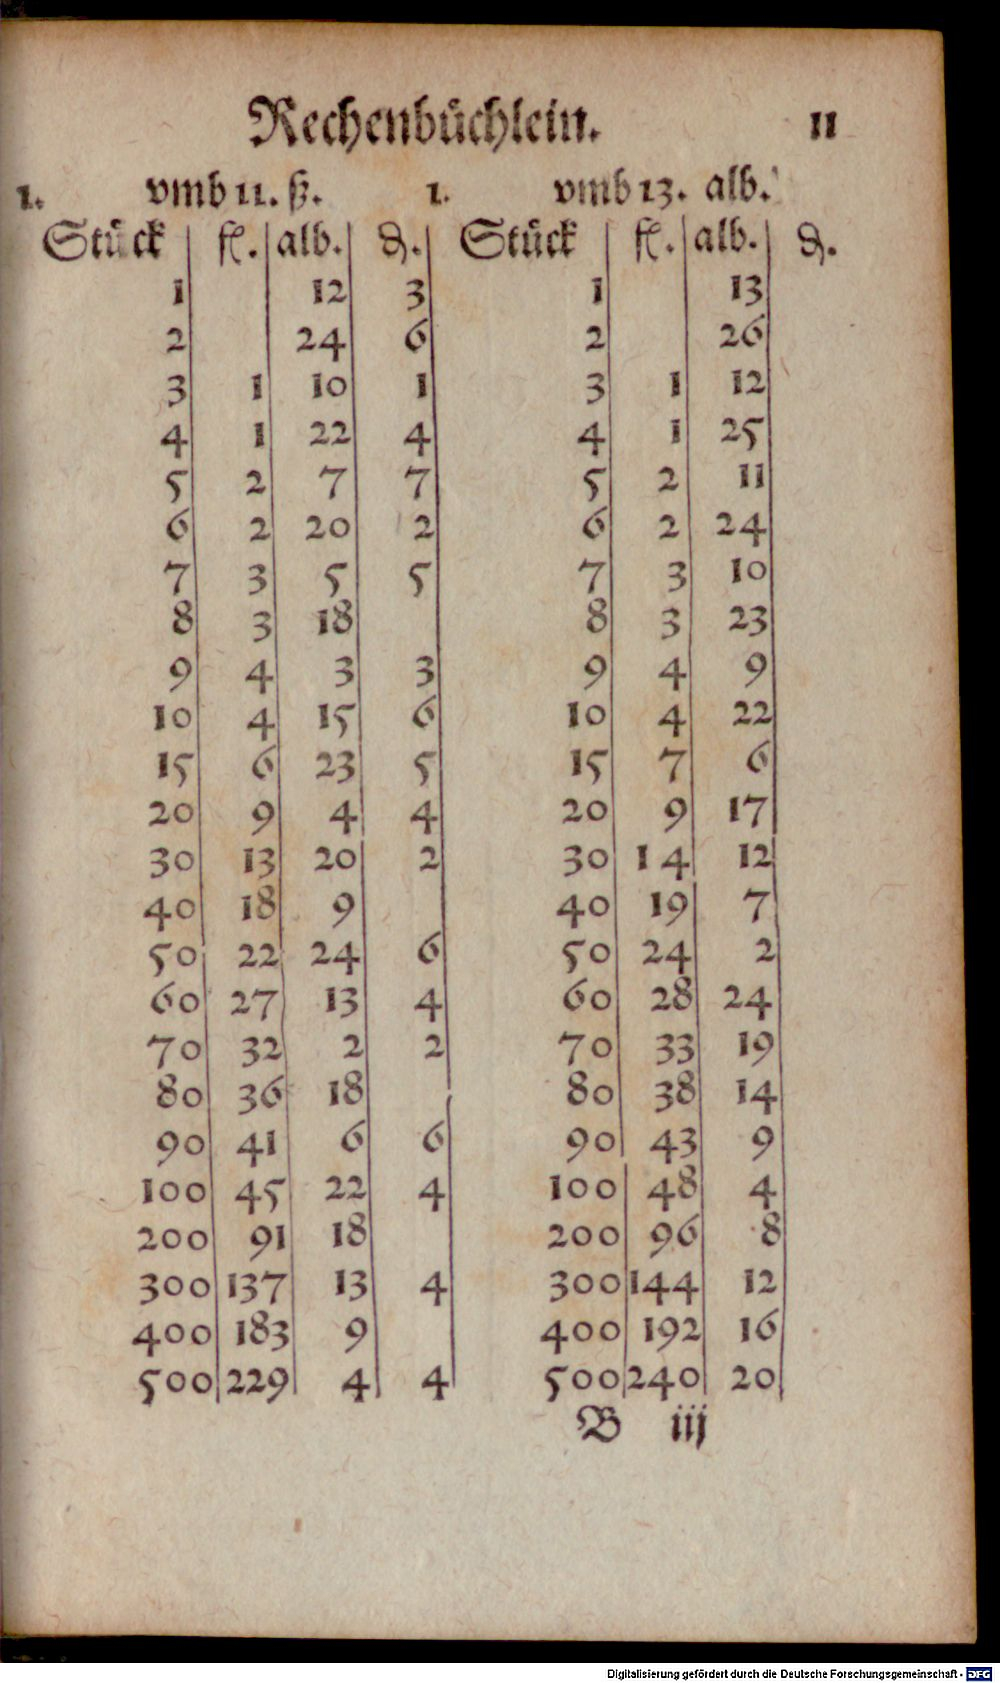 Rechenbuͤchlein. 11
1. vmb 11. ß. 1. vmb 13. alb.
Stuͤck fl. alb. ₰. Stuͤck fl. alb. ₰.
1 12 3 1 13
2 24 6 2 26
3 1 10 1 3 1 12
4 1 22 4 4 1 25
5 2 7 7 5 2 11
6 2 20 2 6 2 24
7 3 5 5 7 3 10
8 3 18 8 3 23
9 4 3 3 9 4 9
10 4 15 6 10 4 22
15 6 23 5 15 7 6
20 9 4 4 20 9 17
30 13 20 2 30 14 12
40 18 9 40 19 7
50 22 24 6 50 24 2
60 27 13 4 60 28 24
70 32 2 2 70 33 19
80 36 18 80 38 14
90 41 6 6 90 43 9
100 45 22 4 100 48 4
200 91 18 200 96 8
300 137 13 4 300 144 12
400 183 9 400 192 16
500 229 4 4 500 240 20
B iij
Digitalisierung gefördert durch die Deutsche Forschungsgemeinschaft - DFG